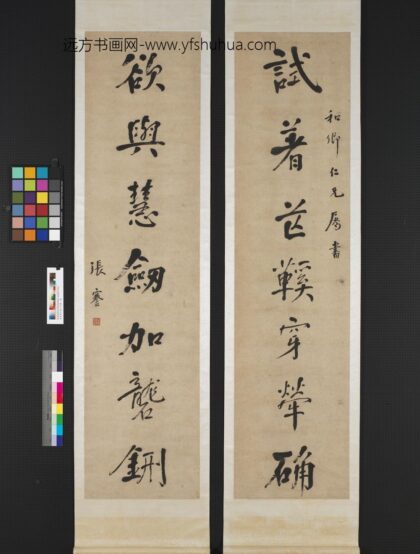 远方书画网-www.yfshuhua.com
和卿仁兄屬書
試著芒鞵穿犖确
欲與慧劒加礱鉶
張謇